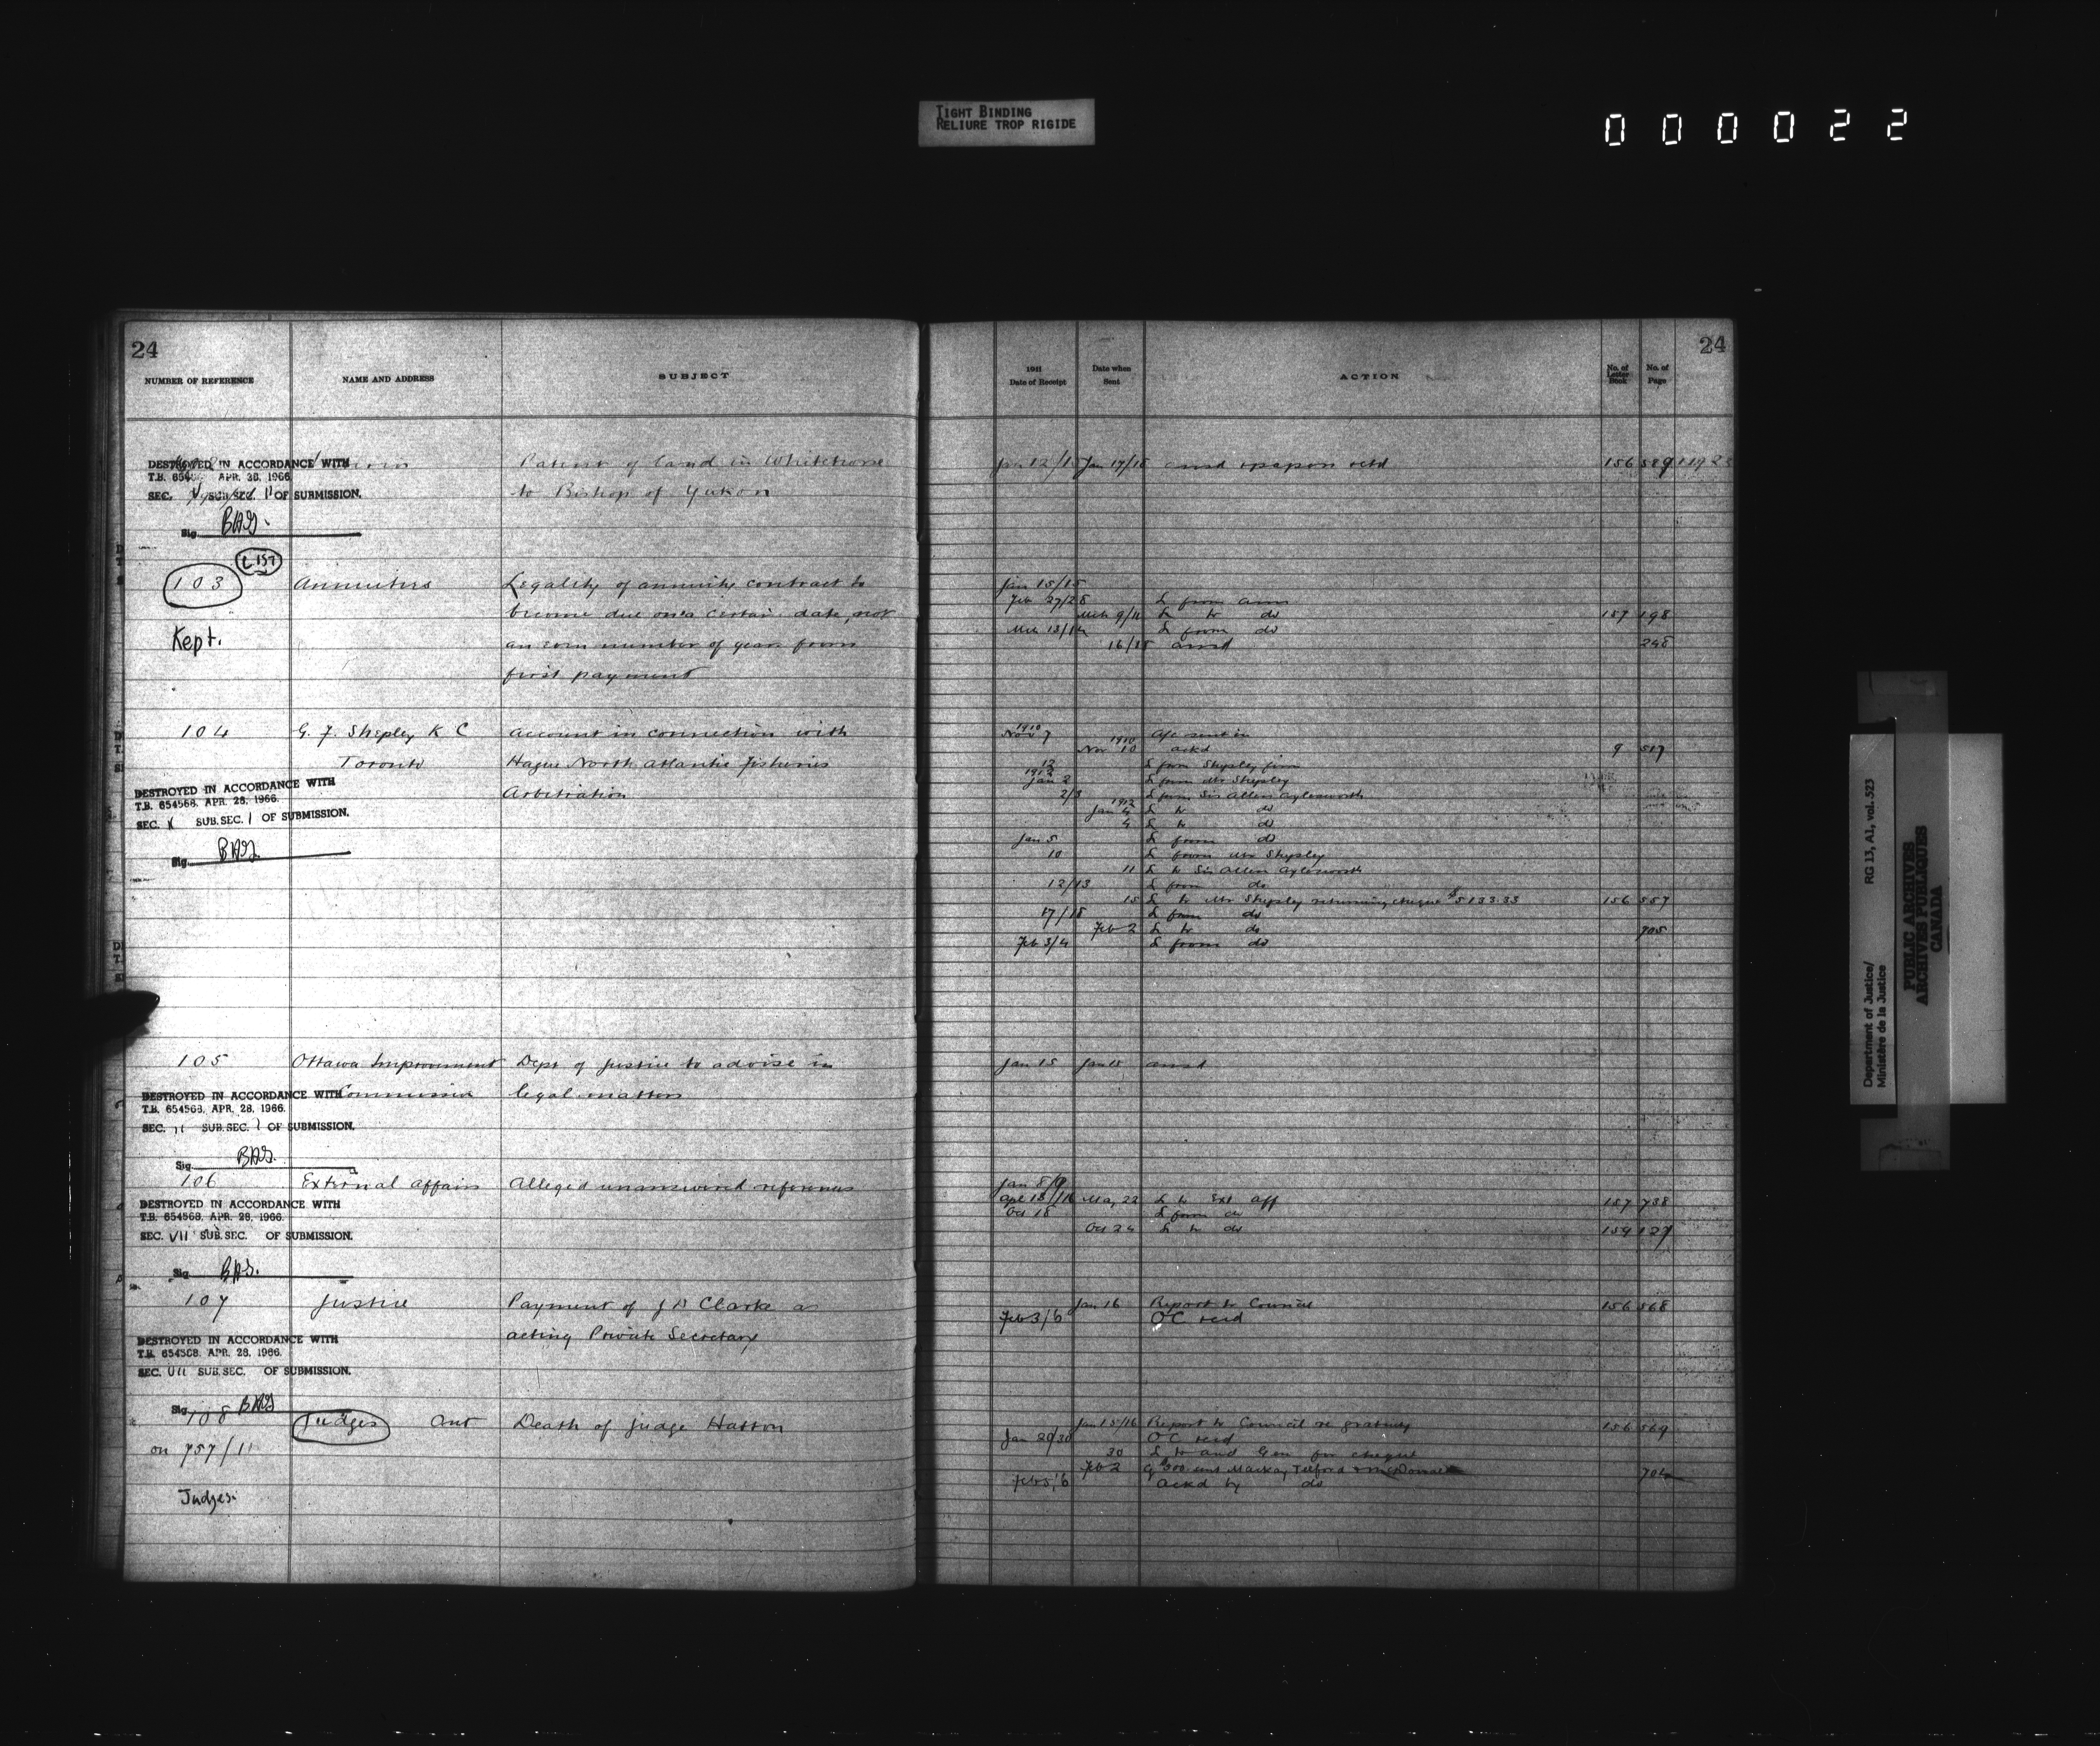 TIGHT BINDING
RELIURE TROP RIGIDE
000022
24
NUMBER OF REFERENCE
NAME AND ADDRESS
SUBJECT
DESTROYED IN ACCORDANCE WITH
T.B. 654 APR. 28, 1966
SEC. SUB.SEC. OF SUBMISSION.
Sig. BAS.
Patent of land in Whitehorse
to Bishop of Yukon
L 157
103
Kept.
Annuities
Legality of annuity contract to
become due on a certain date, not
number of years from
first payment
104
G. F. Shepley K C
Toronto
Account in connection with
Hague North Atlantic Fisheries
Arbitration
DESTROYED IN ACCORDANCE WITH
T.B. 654568, APR. 28, 1966.
SEC. X SUB.SEC. I OF SUBMISSION.
Sig. BAS
105
Ottawa Improvement
Commission
Dept of Justice to advise in
legal matters
DESTROYED IN ACCORDANCE WITH
T.B. 654568, APR. 28, 1966.
SEC. II SUB.SEC. I OF SUBMISSION.
Sig. BAS.
106
External Affairs
Alleged unanswered references
DESTROYED IN ACCORDANCE WITH
T.B. 654568, APR. 28, 1966.
SEC. VII SUB.SEC. OF SUBMISSION.
Sig. BAS.
107
Justice
Payment of J D Clarke as
acting Private Secretary
DESTROYED IN ACCORDANCE WITH
T.B. 654568, APR. 28, 1966.
SEC. VII SUB.SEC. OF SUBMISSION.
Sig. BAS
108
on 757/11
Judges
Judges Ont
Death of Judge Hatton
24
1911
Date of Receipt
Date when
Sent
ACTION
No. of
Letter
Book
No. of
Page
Jan 12/15 Jan 17/18 156 589
Jan 15/15
Feb 27/28 L from
Mch 9/11 L to do 157 198
Mch 13/14 L from do
16/18 ansd 248
1910
Nov 7 A/c sent in
1910
Nov 10 ackd 9 517
12 L from Shepley firm
1912
Jan 2 L from Mr Shepley
2/3 L from Sir Allen Aylesworth
1912
Jan 4 L to do
4 L to do
Jan 5 L from do
10 L from Mr Shepley
11 L to Sir Allen Aylesworth
12/13 L from do
15 L to Mr Shepley returning cheque $5133.33 156 557
17/18 L from do
Feb 2 L to do 705
Feb 3/4 L from do
Jan 15 Jan 15 ansd
Jan 8/9
Apl 15/16 May 22 L to Ext Aff 157 738
Oct 18 L from do
Oct 24 L to do 159 127
Jan 16 Report to Council 156 568
Feb 3/6 OC recd
Jan 15/16 Report to Council re gratuity 156 569
Jan 20/30 OC recd
30 L to Aud Gen for cheque
Feb 2 MacKay Telford & McDonald 704
Feb 5/6 Ackd by do
Department of Justice/
Ministère de la Justice
RG 13, A1, vol. 523
PUBLIC ARCHIVES
ARCHIVES PUBLIQUES
CANADA